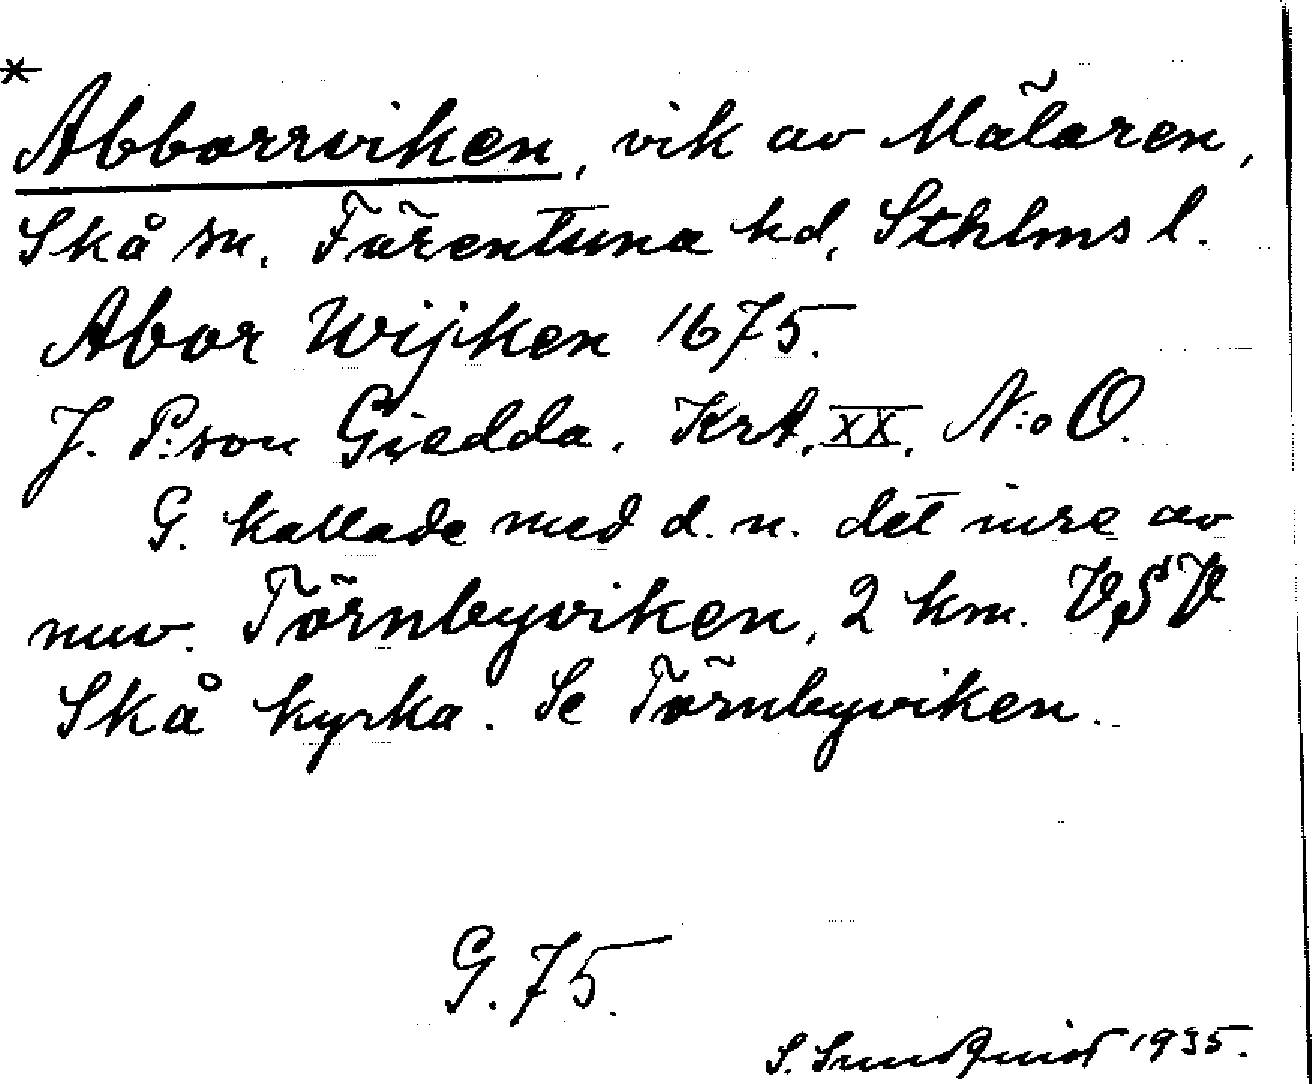 * Abborrviken, vik av Mälaren,
Skå sn, Färentuna hd, Sthlms l.
Abor Wijken 1675.
J. P:son Giedda. Krt. XX. N:o O.
G. kallade med d. n. det inre av
nuv. Törnbyviken, 2 km. VSV
Skå kyrka. Se Törnbyviken.
G. 75.
S. Sundquist 1935.